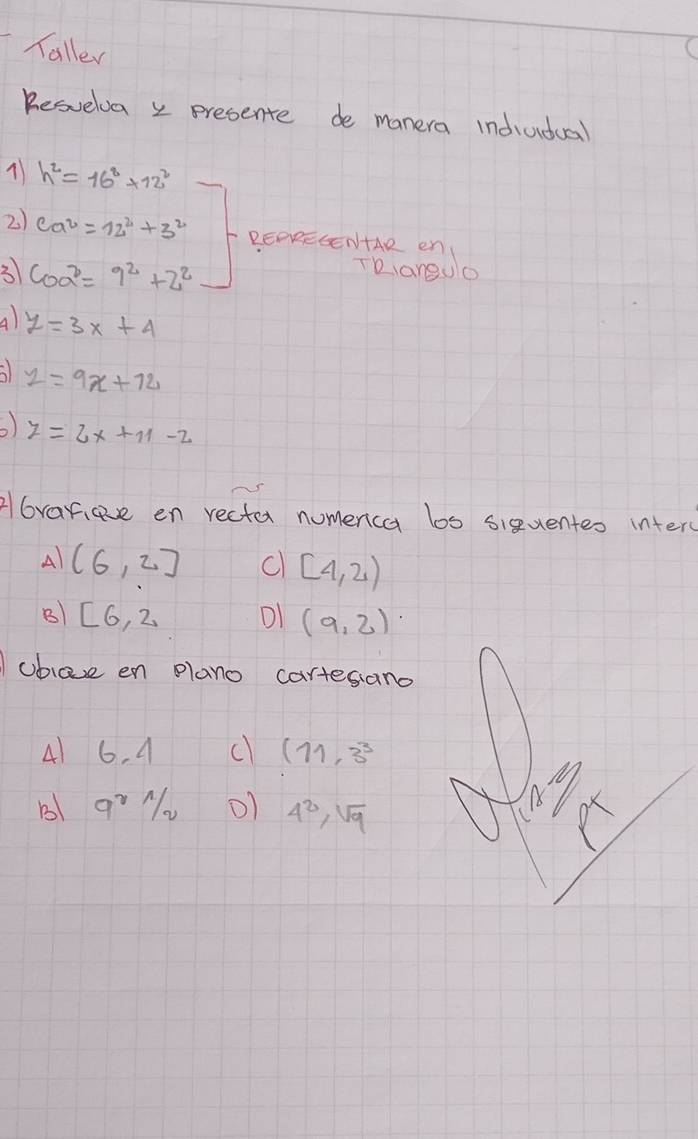 Taller
Resuelva y presente de manera individual
1) h² = 16² + 12²
2) Ca² = 12² + 3²
3) Coa² = 9² + 2²
REPRESENTAR en
TRiangulo
4) y = 3x + 4
5) y = 9x + 12
6) y = 2x + 11 - 2
7) Grafique en recta numerica los siguentes interv
A) (6, 2]
C) [4, 2)
B) [6, 2
D) (9, 2)
) Ubique en plano cartesiano
A) 6, 1
C) (11, 3³
B) 9² 1/2
D) 4², √9